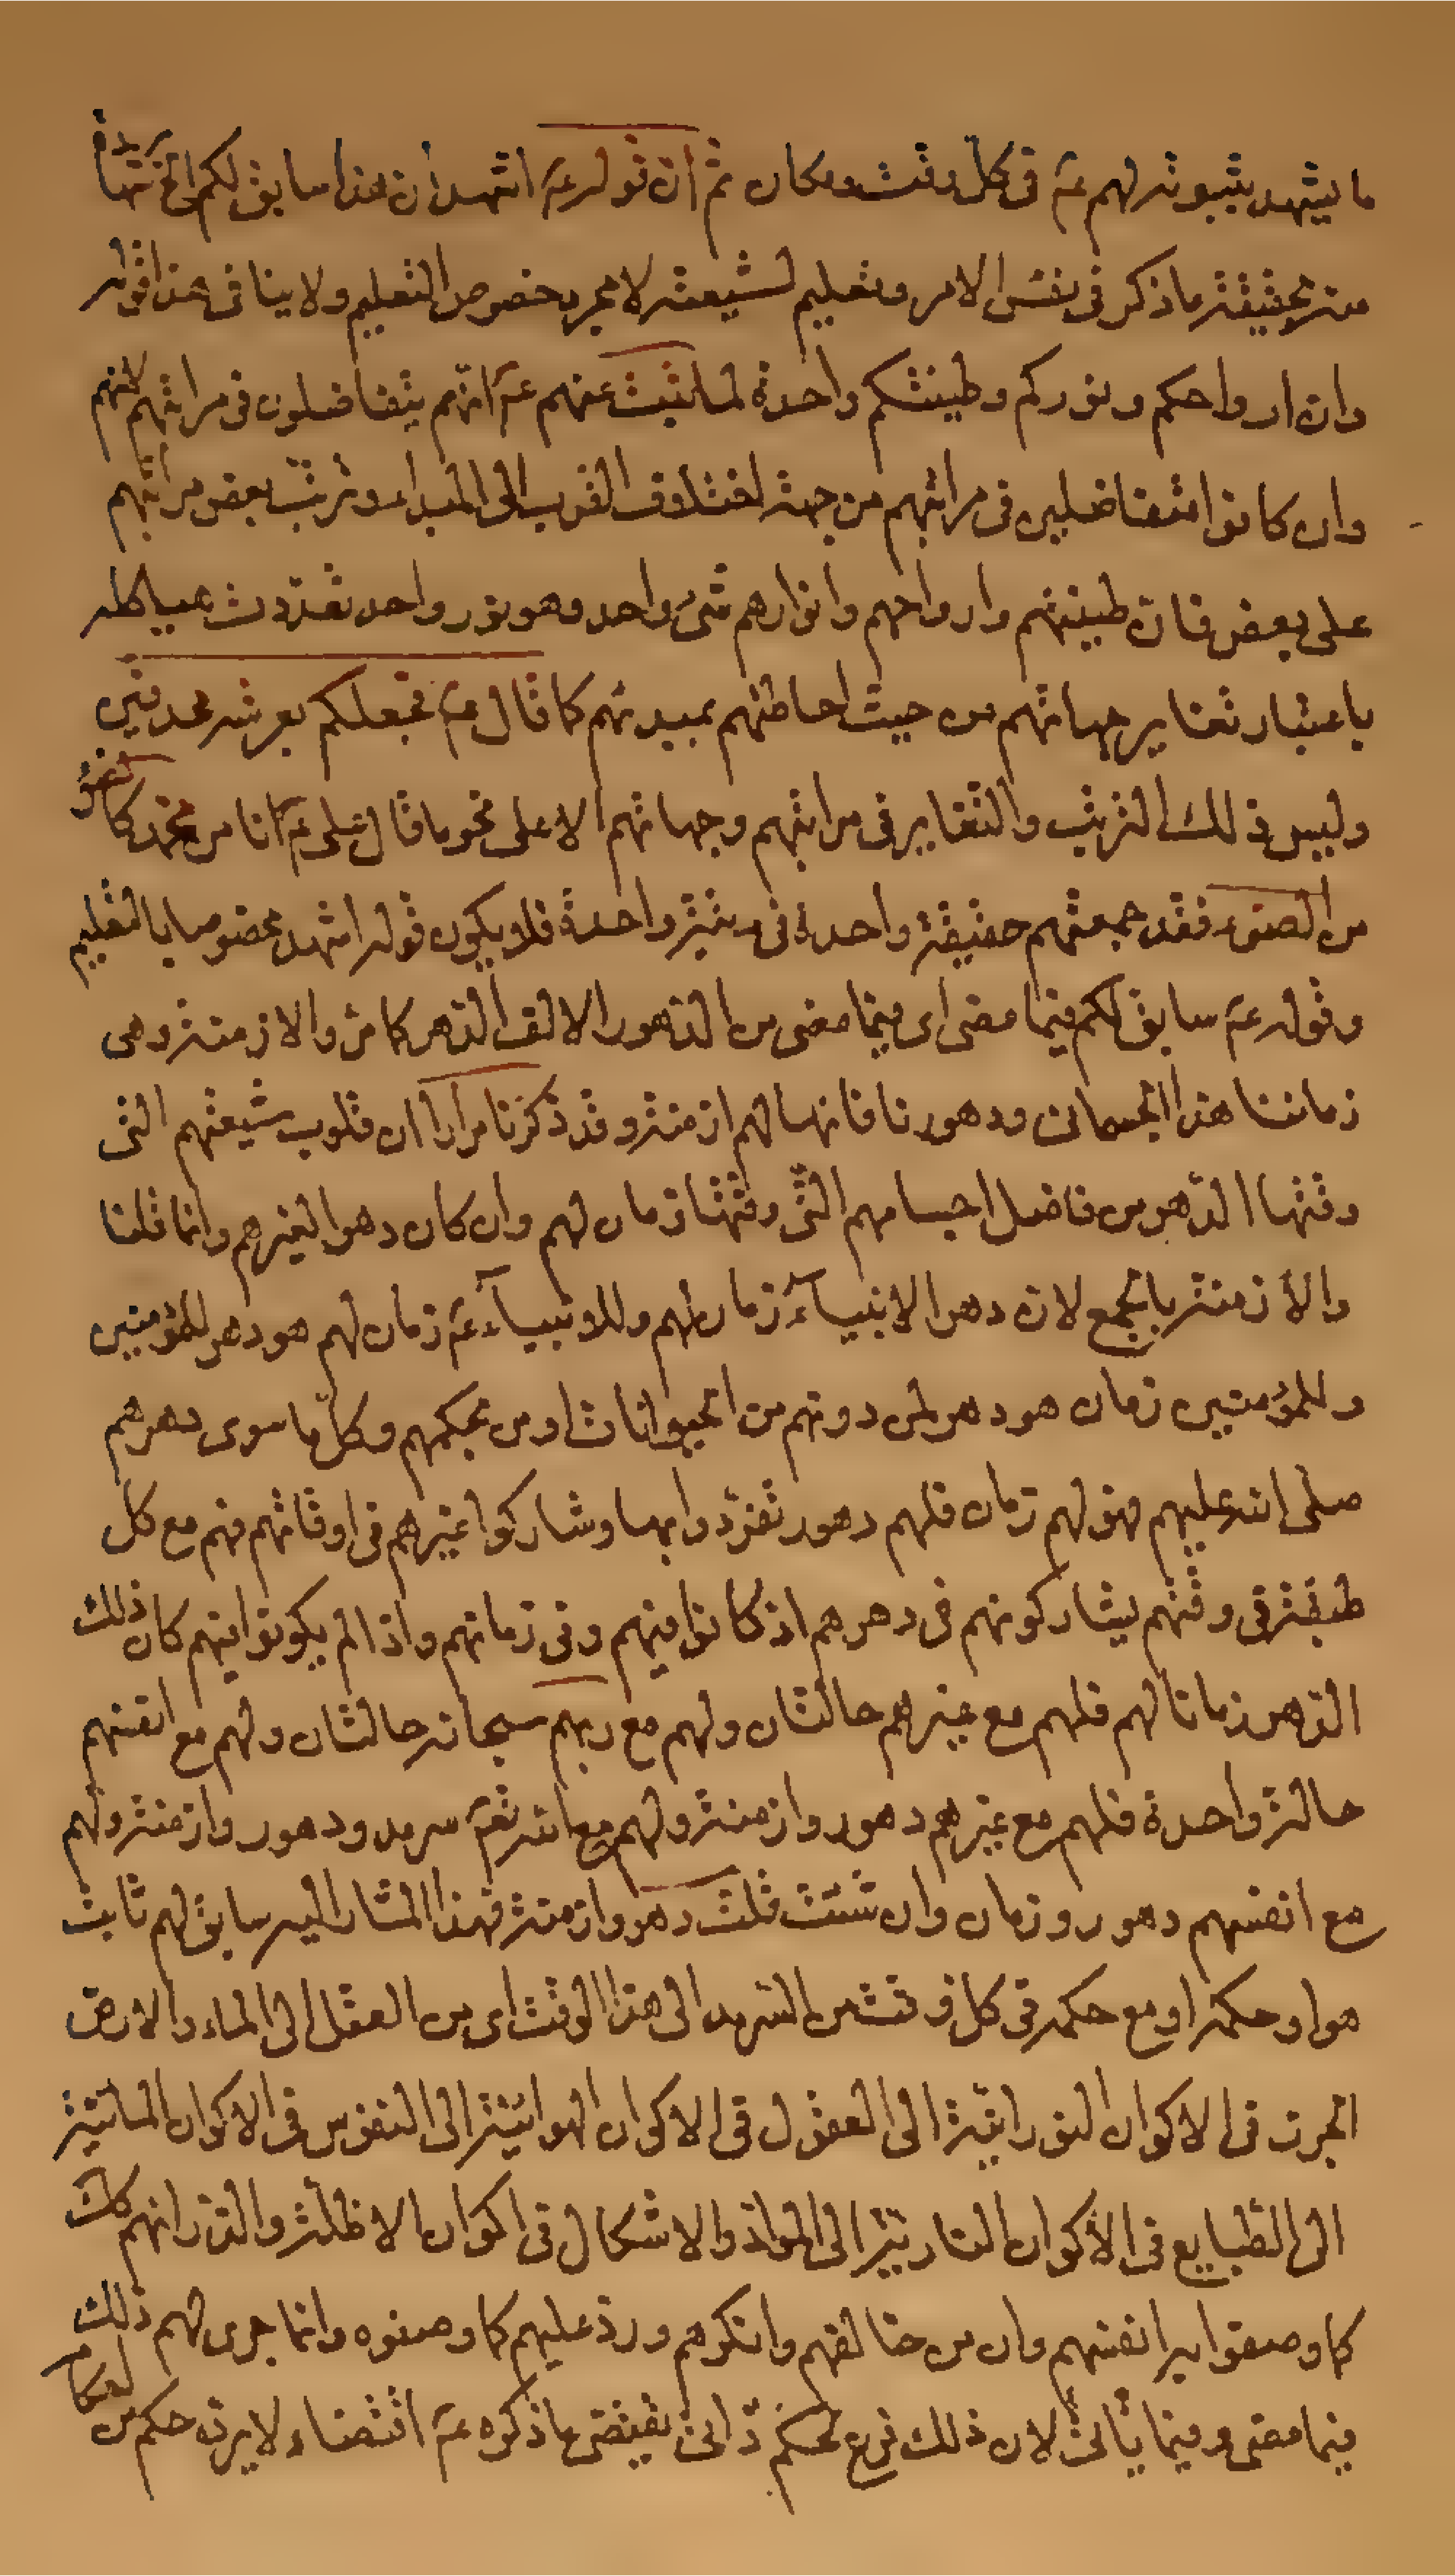 ما يشهد بثبوته لهم عۤ فى كل وقت ومكان ثم ان قوله عۤ اشهد ان هذا سابق لكم الخ شهادة
منه بحقيقة ما ذكر فى نفس الامر وتعليم لشيعته لا مجرد خصوص التعليم ولا ينافى هذا قوله
وان ارواحكم ونوركم وطينتكم واحدة لما ثبت عنهم عۤ انهم يتفاضلون فى مراتبهم لانهم
وان كانوا متفاضلين فى مراتبهم من جهة اختلاف القرب الى المبداء وترتب بعض مراتبهم
على بعض فان طينتهم وارواحهم وانوارهم شئ واحد وهو نور واحد تعددت هياكله
باعتبار تغاير جهاتهم من حيث احاطتهم بمبدئهم كما قال عۤ فجعلكم بعرشه محدقين
وليس ذلك الترتب والتغاير فى مراتبهم وجهاتهم الا على نحو ما قال على عۤ انا من محمد كالضوء
من الضوء فقد جمعتهم حقيقة واحدة فى رتبة واحدة فلا يكون قوله اشهد مخصوصا بالتعليم
وقوله عۤ سابق لكم فيما مضى اى فيما مضى من الدهور الالف الدهر كما مر والازمنة وهى
زماننا هذا الجسمانى ودهورنا فانها لهم ازمنة وقد ذكرنا مرارا ان قلوب شيعتهم التى
وقتها الدهر من فاضل اجسامهم التى وقتها زمان لهم وان كان دهرا لغيرهم وانما قلنا
والأزمنة بالجمع لان دهر الانبياۤء زمان لهم وللانبياۤء عۤ زمان لهم هو دهر للمؤمنين
وللمؤمنين زمان هو دهر لمن دونهم من الحيوانات او من بحكمهم وكل ما سوى دهرهم
صلى الله عليهم فهو لهم زمان فلهم دهور تفردوا بها وشاركوا غيرهم فى اوقاتهم فهم مع كل
طبقة فى وقتهم يشاركونهم فى دهرهم اذ كانوا فيهم وفى زمانهم واذا لم يكونوا فيهم كان ذلك
الدهر زمانا لهم فلهم مع غيرهم حالتان ولهم مع ربهم سبحانه حالتان ولهم مع انفسهم
حالة واحدة فلهم مع غيرهم دهور وازمنة ولهم مع الله تعۤ سرمد ودهور وازمنة ولهم
مع انفسهم دهور وزمان وان شئت قلت دهر وازمنة فهذا المشار اليه سابق لهم ثابت
هو او حكمه او مع حكمه فى كل وقت من السرمد الى هذا الوقت اى من العقل الى الماء والارض
الجرز فى الاكوان النورانية الى العقول فى الاكوان الهوائية الى النفوس فى الاكوان المائية
الى الطبايع فى الأكوان النارية الى المواد والاشكال فى اكوان الاظلة والذر انهم كك
كما وصفوا به انفسهم وان من خالفهم وانكرهم ورد عليهم كما وصفوه وانما جرى لهم ذلك
فيما مضى وفيما يأتى لان ذلك فرع لحكم ذاتى يقتضى ما ذكره عۤ اقتضاء لا يرد حكم من احكام